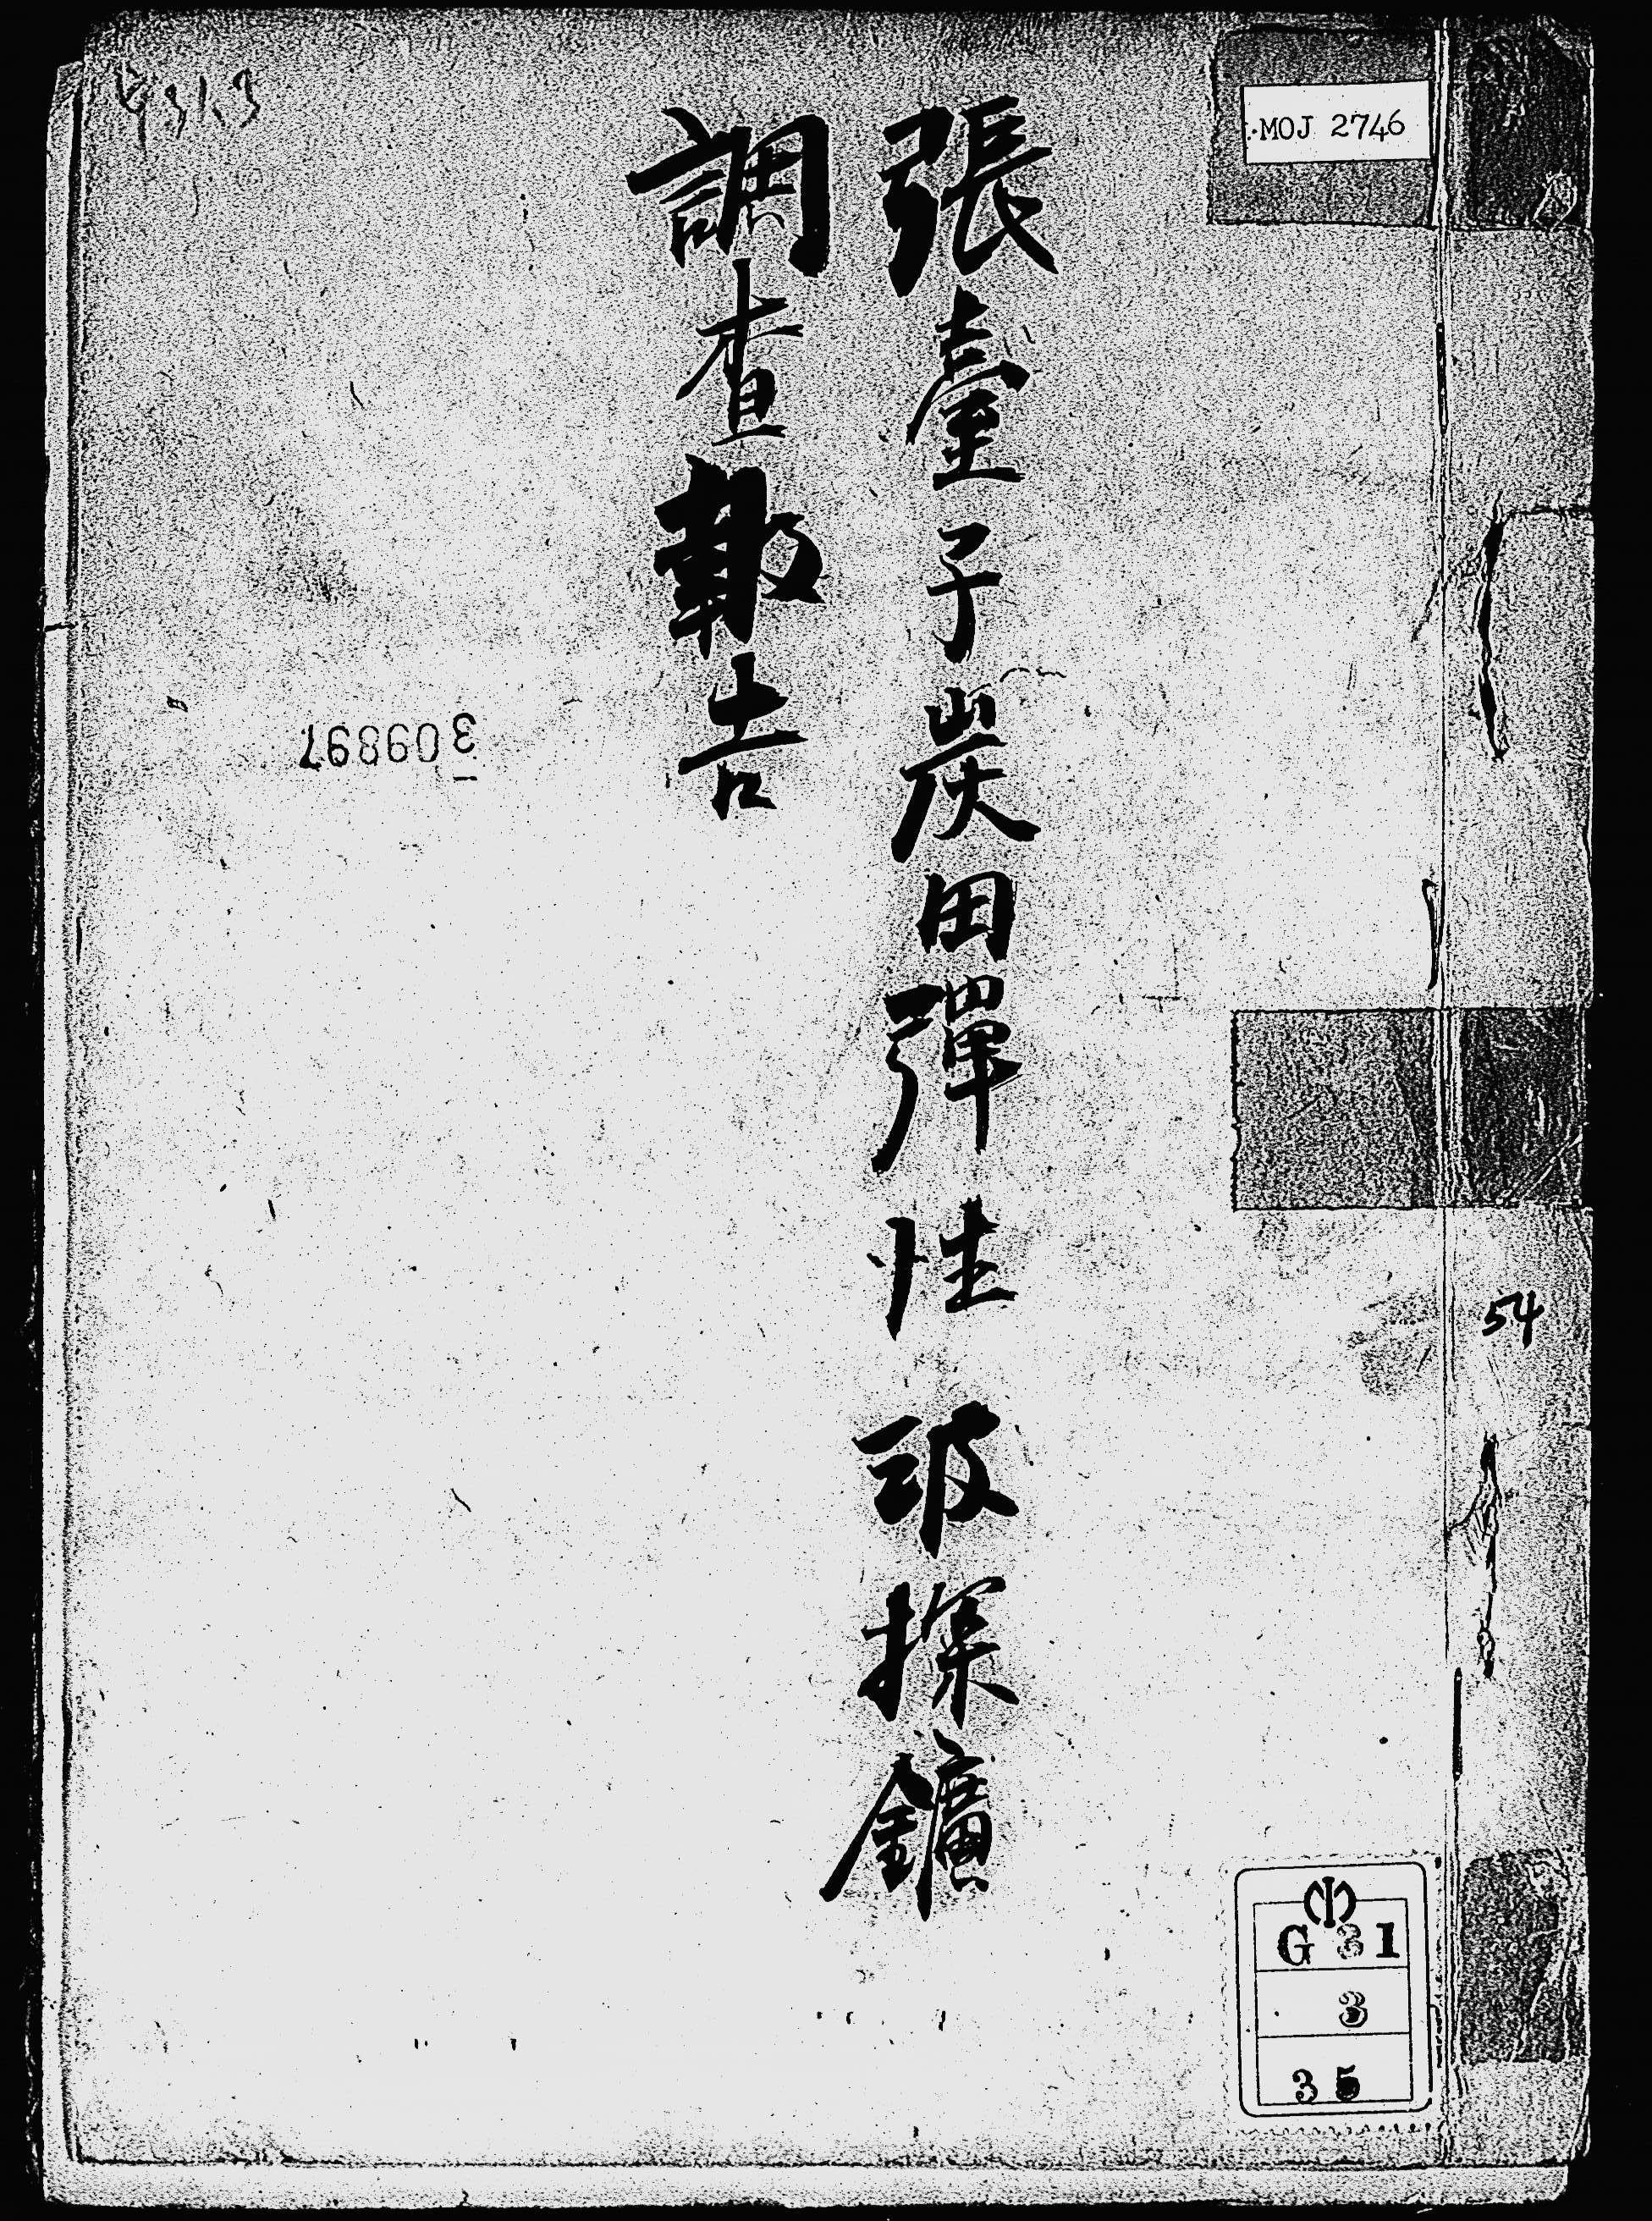 張臺子炭田彈性波探鑛
調査報告
MOJ 2746
309897
54
G 31
3
35